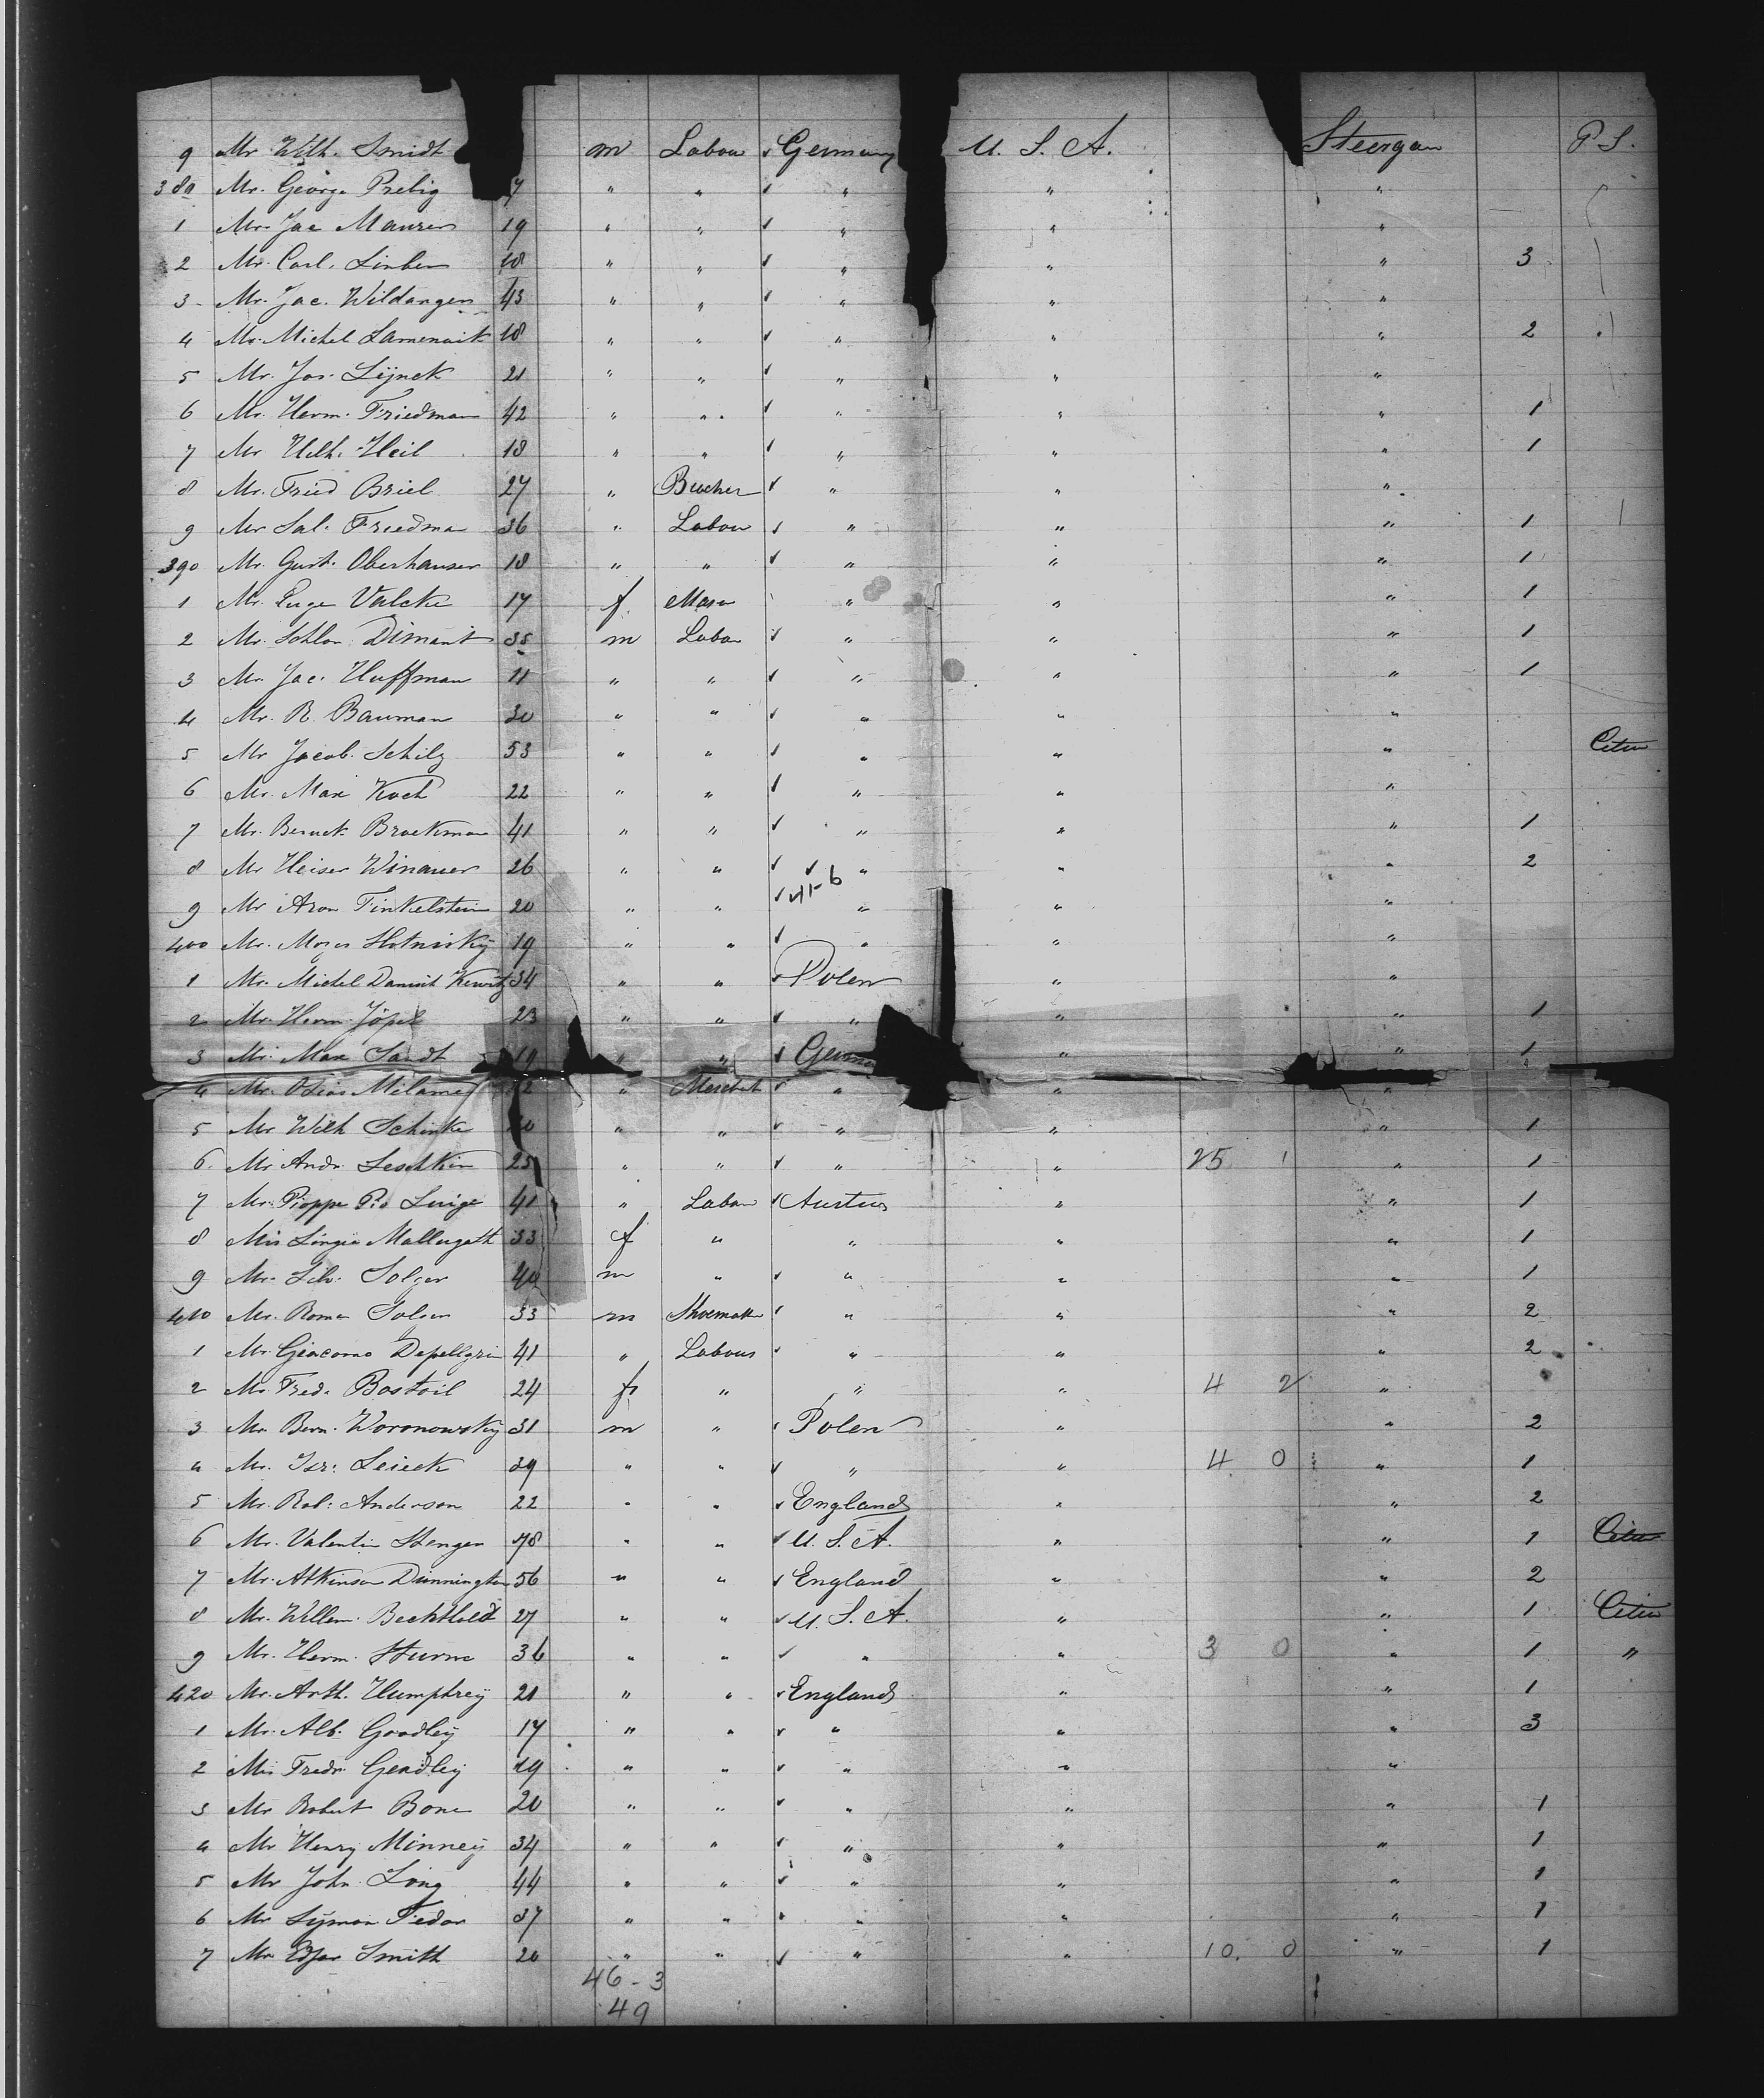 9 Mr Wilh. Smidt m Labou ✓ Germany U. S. A. Steergan P S.
380 Mr. George Prebig 7 " " ✓ " " "
1 Mr Jac Maurer 19 " " ✓ " " "
2 Mr. Carl. Linben 18 " " ✓ " " " 3
3 Mr. Jac. Wildangen 43 " " ✓ " " "
4 Mr. Michel Lamenait 18 " " ✓ " " " 2
5 Mr. Jos. Lÿnek 21 " " ✓ " " "
6 Mr. Herm. Friedman 42 " " ✓ " " " 1
7 Mr Wilh. Heil 18 " " ✓ " " " 1
8 Mr. Fried Briel 27 " Bucher ✓ " " "
9 Mr Sal. Friedma 36 " Labou ✓ " " " 1
390 Mr. Gust. Oberhauser 18 " " ✓ " " " 1
1 Mr. Valcke 17 f. " " " 1
2 Mr. Schlon Dimant 35 m Labou ✓ " " " 1
3 Mr. Jac. Huffman 11 " " ✓ " " " 1
4 Mr. R. Bauman 30 " " ✓ " " "
5 Mr Jacob. Schilz 53 " " ✓ " " "
6 Mr. Max Koch 22 " " ✓ " " "
7 Mr. Brockman 41 " " ✓ " " " 1
8 Mr Heiser Winauer 26 " " ✓ ✓ " " " 2
9 Mr Aron Finkelstein 20 " " ✓ 41-6 " " "
400 Mr. Moses 19 " " ✓ " " "
1 Mr. Michel Danisch 34 " " ✓ Polen " "
2 Mr. Herm. Jöpel 23 " " ✓ " " " 1
3 Mr. Max Sandt 19 " " ✓ " " 1
4 Mr. Osias Milamed " ✓ " " "
5 Mr Wilh Schinke " " ✓ " " " 1
6. Mr Andr. Leschkin 25 " " ✓ " " 25 1 " 1
7 Mr. Pio Luige 41 " Labou ✓ " " 1
8 33 f " " " " 1
9 Mr. Silv. Solger m " ✓ " " " 1
410 Mr. Roman 33 m Shoemak ✓ " " " 2
1 Mr. Giacomo Depellgrin 41 " Labour ✓ " " " 2
2 Mr. Fred. Bostoil 24 f " " " 4 2 "
3 Mr Bern. Woronowsky 31 m " Polen " " 2
4 Mr. Isr. Leieck 39 " " ✓ " " 4. 0 " 1
5 Mr. Rob. Anderson 22 " " ✓ England " " 2
6 Mr. Valentin Stenger 48 " " ✓ U. S. A. " " 1
7 Mr. Atkinson Dunnington 56 " " ✓ England " " 2
8 Mr. Willem. Bechthold 27 " " ✓ U. S. A. " " 1
9 Mr. Herm. Sturm 36 " " ✓ " " 3 0 " 1 "
420 Mr. Arth. Humphrey 21 " " ✓ England " " 1
1 Mr. Alb. Goodley 17 " " ✓ " " " 3
2 Mr Fredr. Goodley 19 " " ✓ " " "
3 Mr Robert Bone 20 " " ✓ " " " 1
4 Mr Henry Minney 34 " " ✓ " " " 1
5 Mr John Long 44 " " ✓ " " " 1
6 Mr Sÿmon Fedor 37 " " " " " 1
7 Mr Edgar Smith 20 " " ✓ " " 10. 0 " 1
46 - 3
49